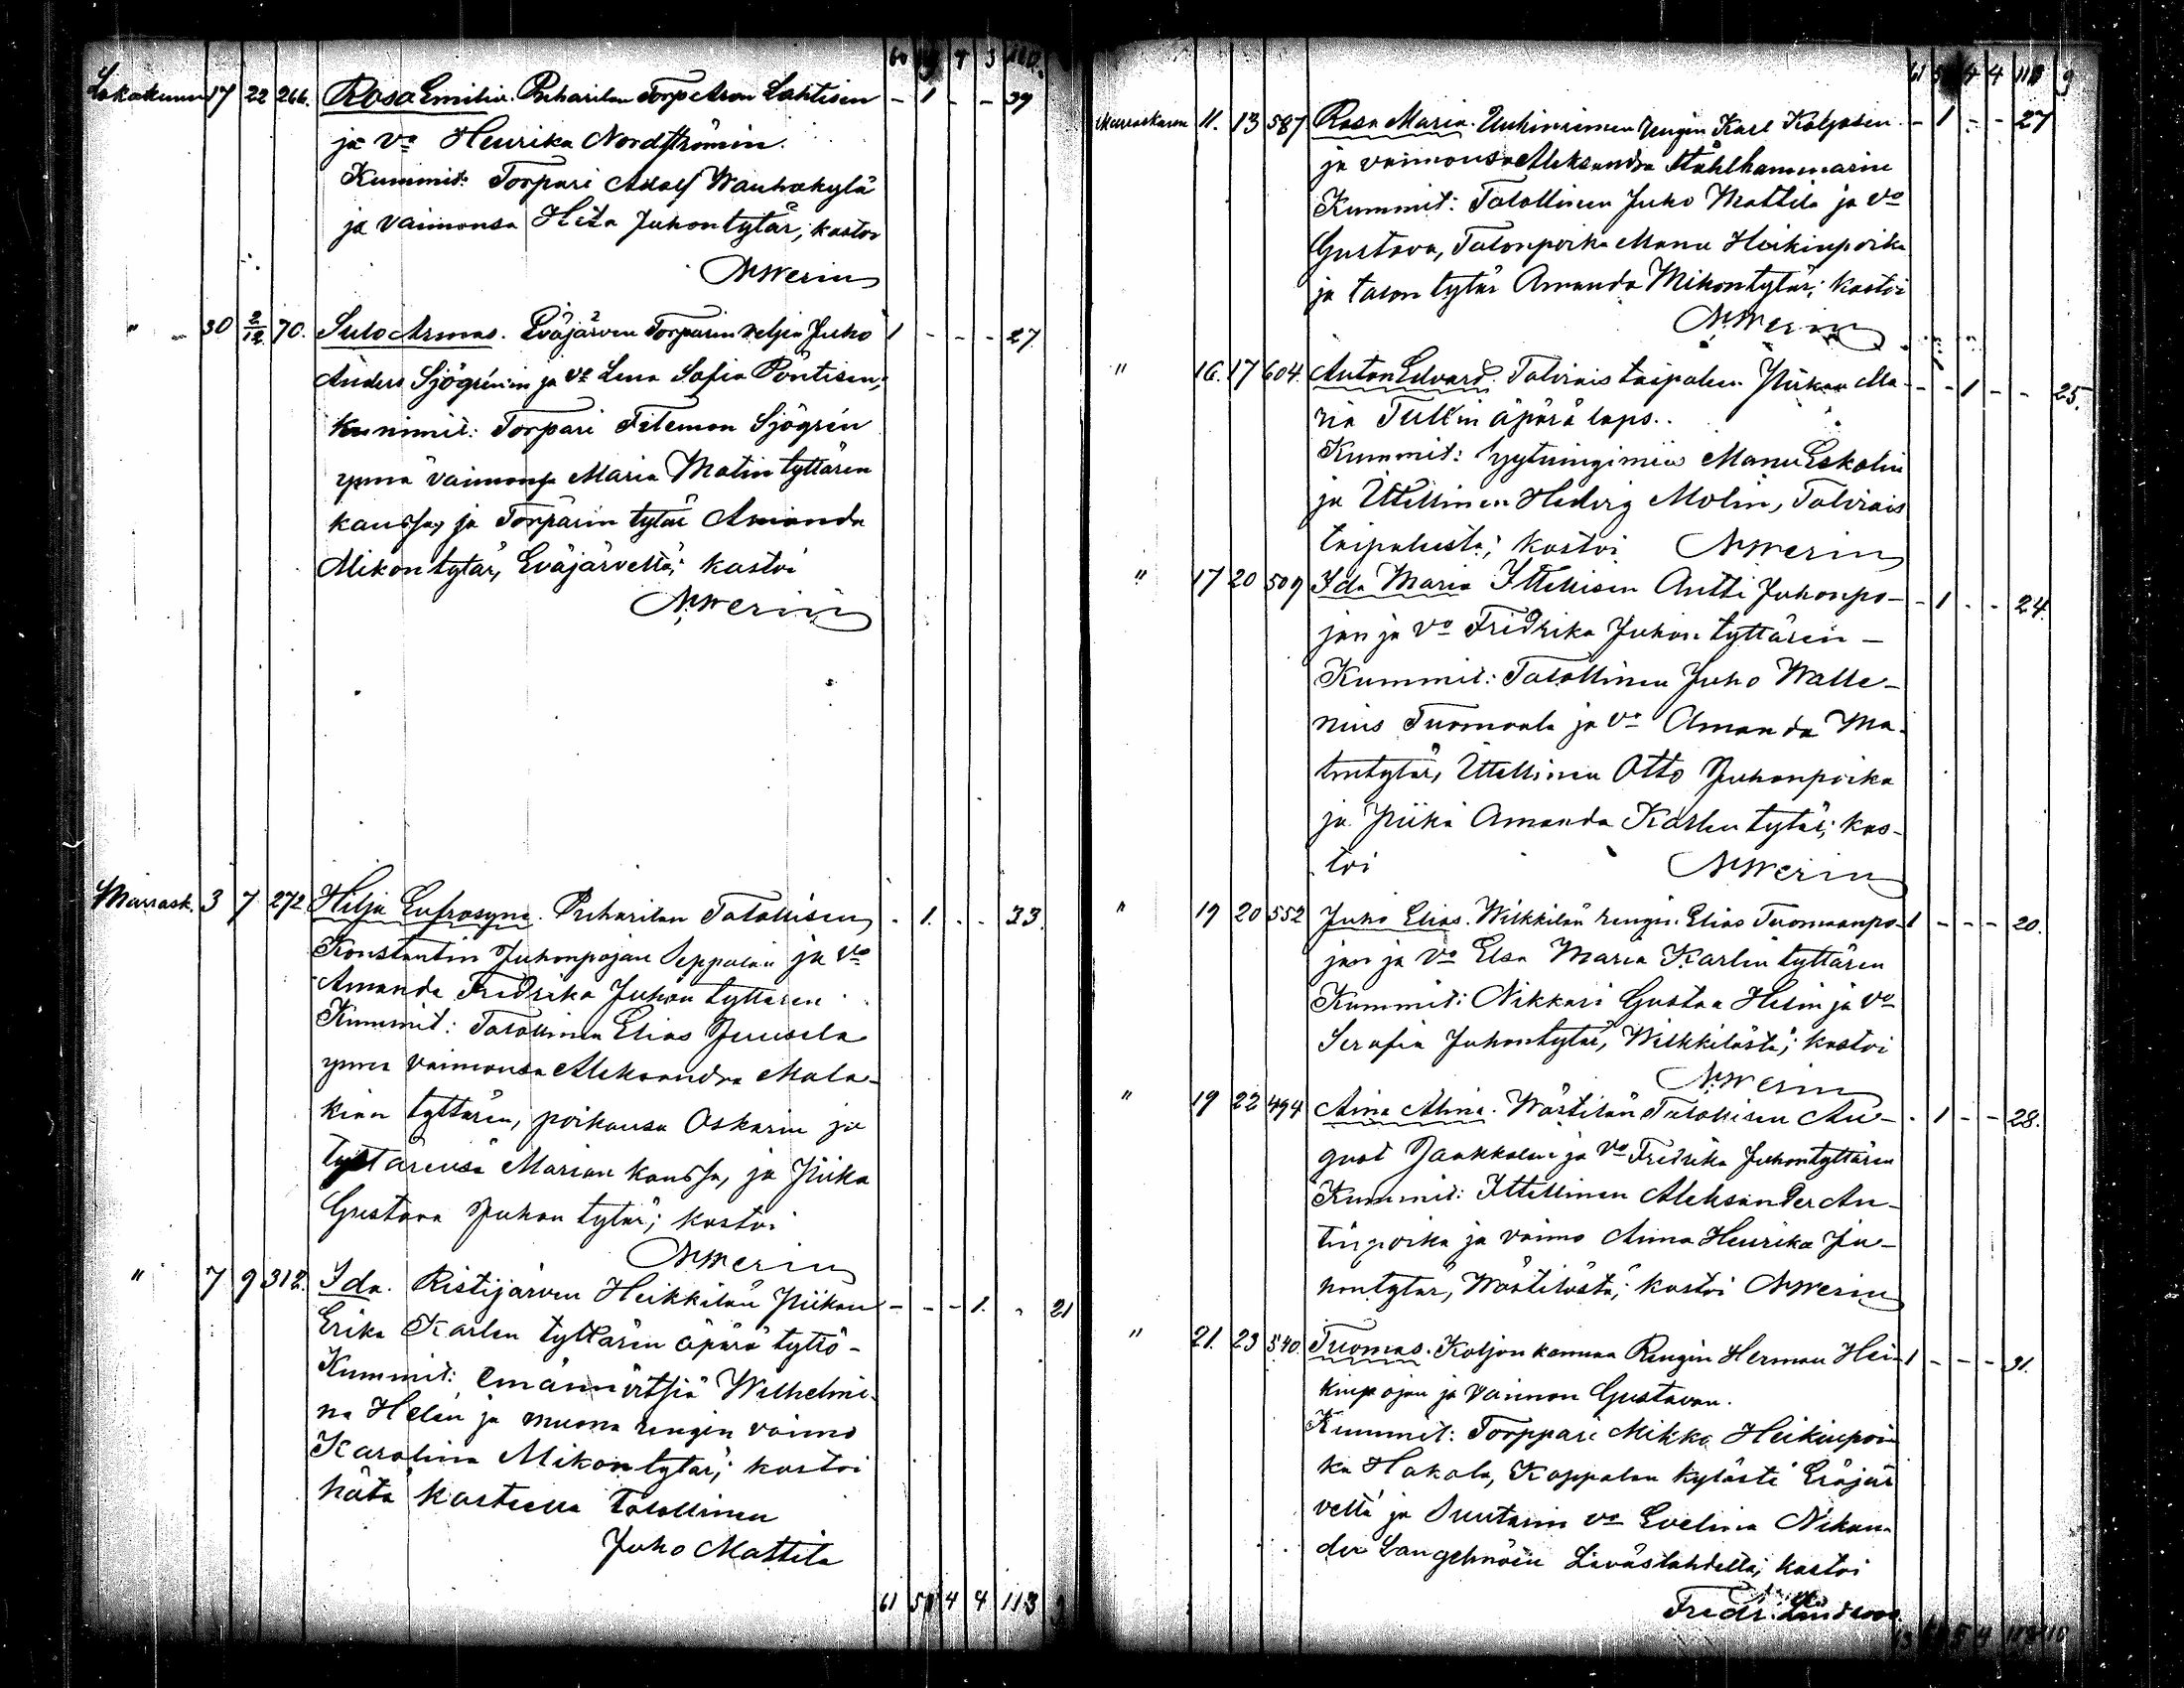 60 4 3 110.
Lokakuun 17 22 266. Rosa Emilia. Puharilan Torp. Aron Lahtisen - 1 - - 39
ja vo Henrika Nordströmin.
Kummit: Torpari Adolf Wauhakylä
ja vaimonsa Heta Juhontytär; kastoi
N. Nerin
" 30 2/12 70. Sulo Armas. Eväjärven Torparin veljen Juho 1 - - - 27
Anders Sjögrénin ja vo Lena Sofia Pöntisen;
kummit: Torpari Filemon Sjögrén
ynnä vaimonsa Maria Matin tyttären
kanssa, ja Torparin tytär Amanda
Mikontytär, Eväjärveltä; kastoi
N. Nerin
Marrask. 3 7 272 Hilja Eufrosyna. Puharilan Talollisen - 1. - - 33.
Konstantin Juhonpojan Seppälän ja vo
Amanda Fredrika Juhon tyttären
Kummit: Talollinen Elias Juusela
ynnä vaimonsa Aleksandra Mala-
kian tyttären, poikansa Oskarin ja
tyttärensä Marian kanssa, ja Piika
Gustava Juhon tytär; kastoi
N. Nerin
" 7 9 312. Ida. Ristijärven Heikkilän Piikan - - - 1. - 21
Erika Karlen tyttären äpärä tyttö-
Kummit: Emännöitsiä Wilhelmi-
na Helén ja muona rengin vaimo
Karolina Mikontytär; kastoi
hätä kasteella Talollinen
Juho Mattila
61 50 4 4 113 9
61 4 4 113 9
Marraskuun 11. 13 587 Rosa Maria. Uuhiniemen rengin Karl Koljosen - 1 - - 27
ja vaimonsa Aleksandra Stålhammarin
Kummit: Talollinen Juho Mattila ja vo
Gustava, Talonpoika Manu Heikinpoika
ja talon tytär Amanda Mikontytär; kastoi
N. Nerin
" 16. 17 604. Anton Edvard. Talviais taipaleen Piikan Ma- - - 1 - - 25.
ria Tullin äpärä laps.
Kummit: Manu Eskolin
ja Itellinen Hedvig Molin, Talviais
taipaleesta; kastoi N. Nerin
" 17 20 509 Ida Maria Itellisen Antti Juhonpo- - 1 - - 24.
jan ja vo Fredrika Juhon tyttären -
Kummit: Talollinen Juho Walle-
nius Tuomaala ja vo Amanda Ma-
tintytär, Itellinen Otto Juhonpoika
ja Piika Amanda Karlen tytär; kas-
toi N. Nerin
" 19 20 552 Juho Elias. Wilkkilän rengin Elias Tuomaanpo- 1 - - - 20.
jan ja vo Elsa Maria Karlen tyttären
Kummit: Nikkari Gustaa Helin ja vo
Serafia Juhontytär, Wilkkilästä; kastoi
N. Nerin
" 19 22 494 Aina Alina. Wästilän Talollisen Au- - 1 - - 28.
gust Jaakkolan ja vo Fredrika Juhontyttären
Kummit: Itellinen Aleksander An-
tinpoika ja vaimo Anna Henrika Ju-
hontytär, Wästilästä; kastoi N. Nerin
" 21. 23 540. Tuomas. Koljonkannan Rengin Herman Hei- 1 - - - 31.
kinpojan ja vaimon Gustavan.
Kummit: Torppari Mikko Heikinpoi-
ka Hakala, Koppalan kylästä Eräjär-
veltä ja Suutarin vo Evelina Nikan-
der Längelmäen Liväslahdelta; kastoi
Fredr. Lindroos
5 4 10